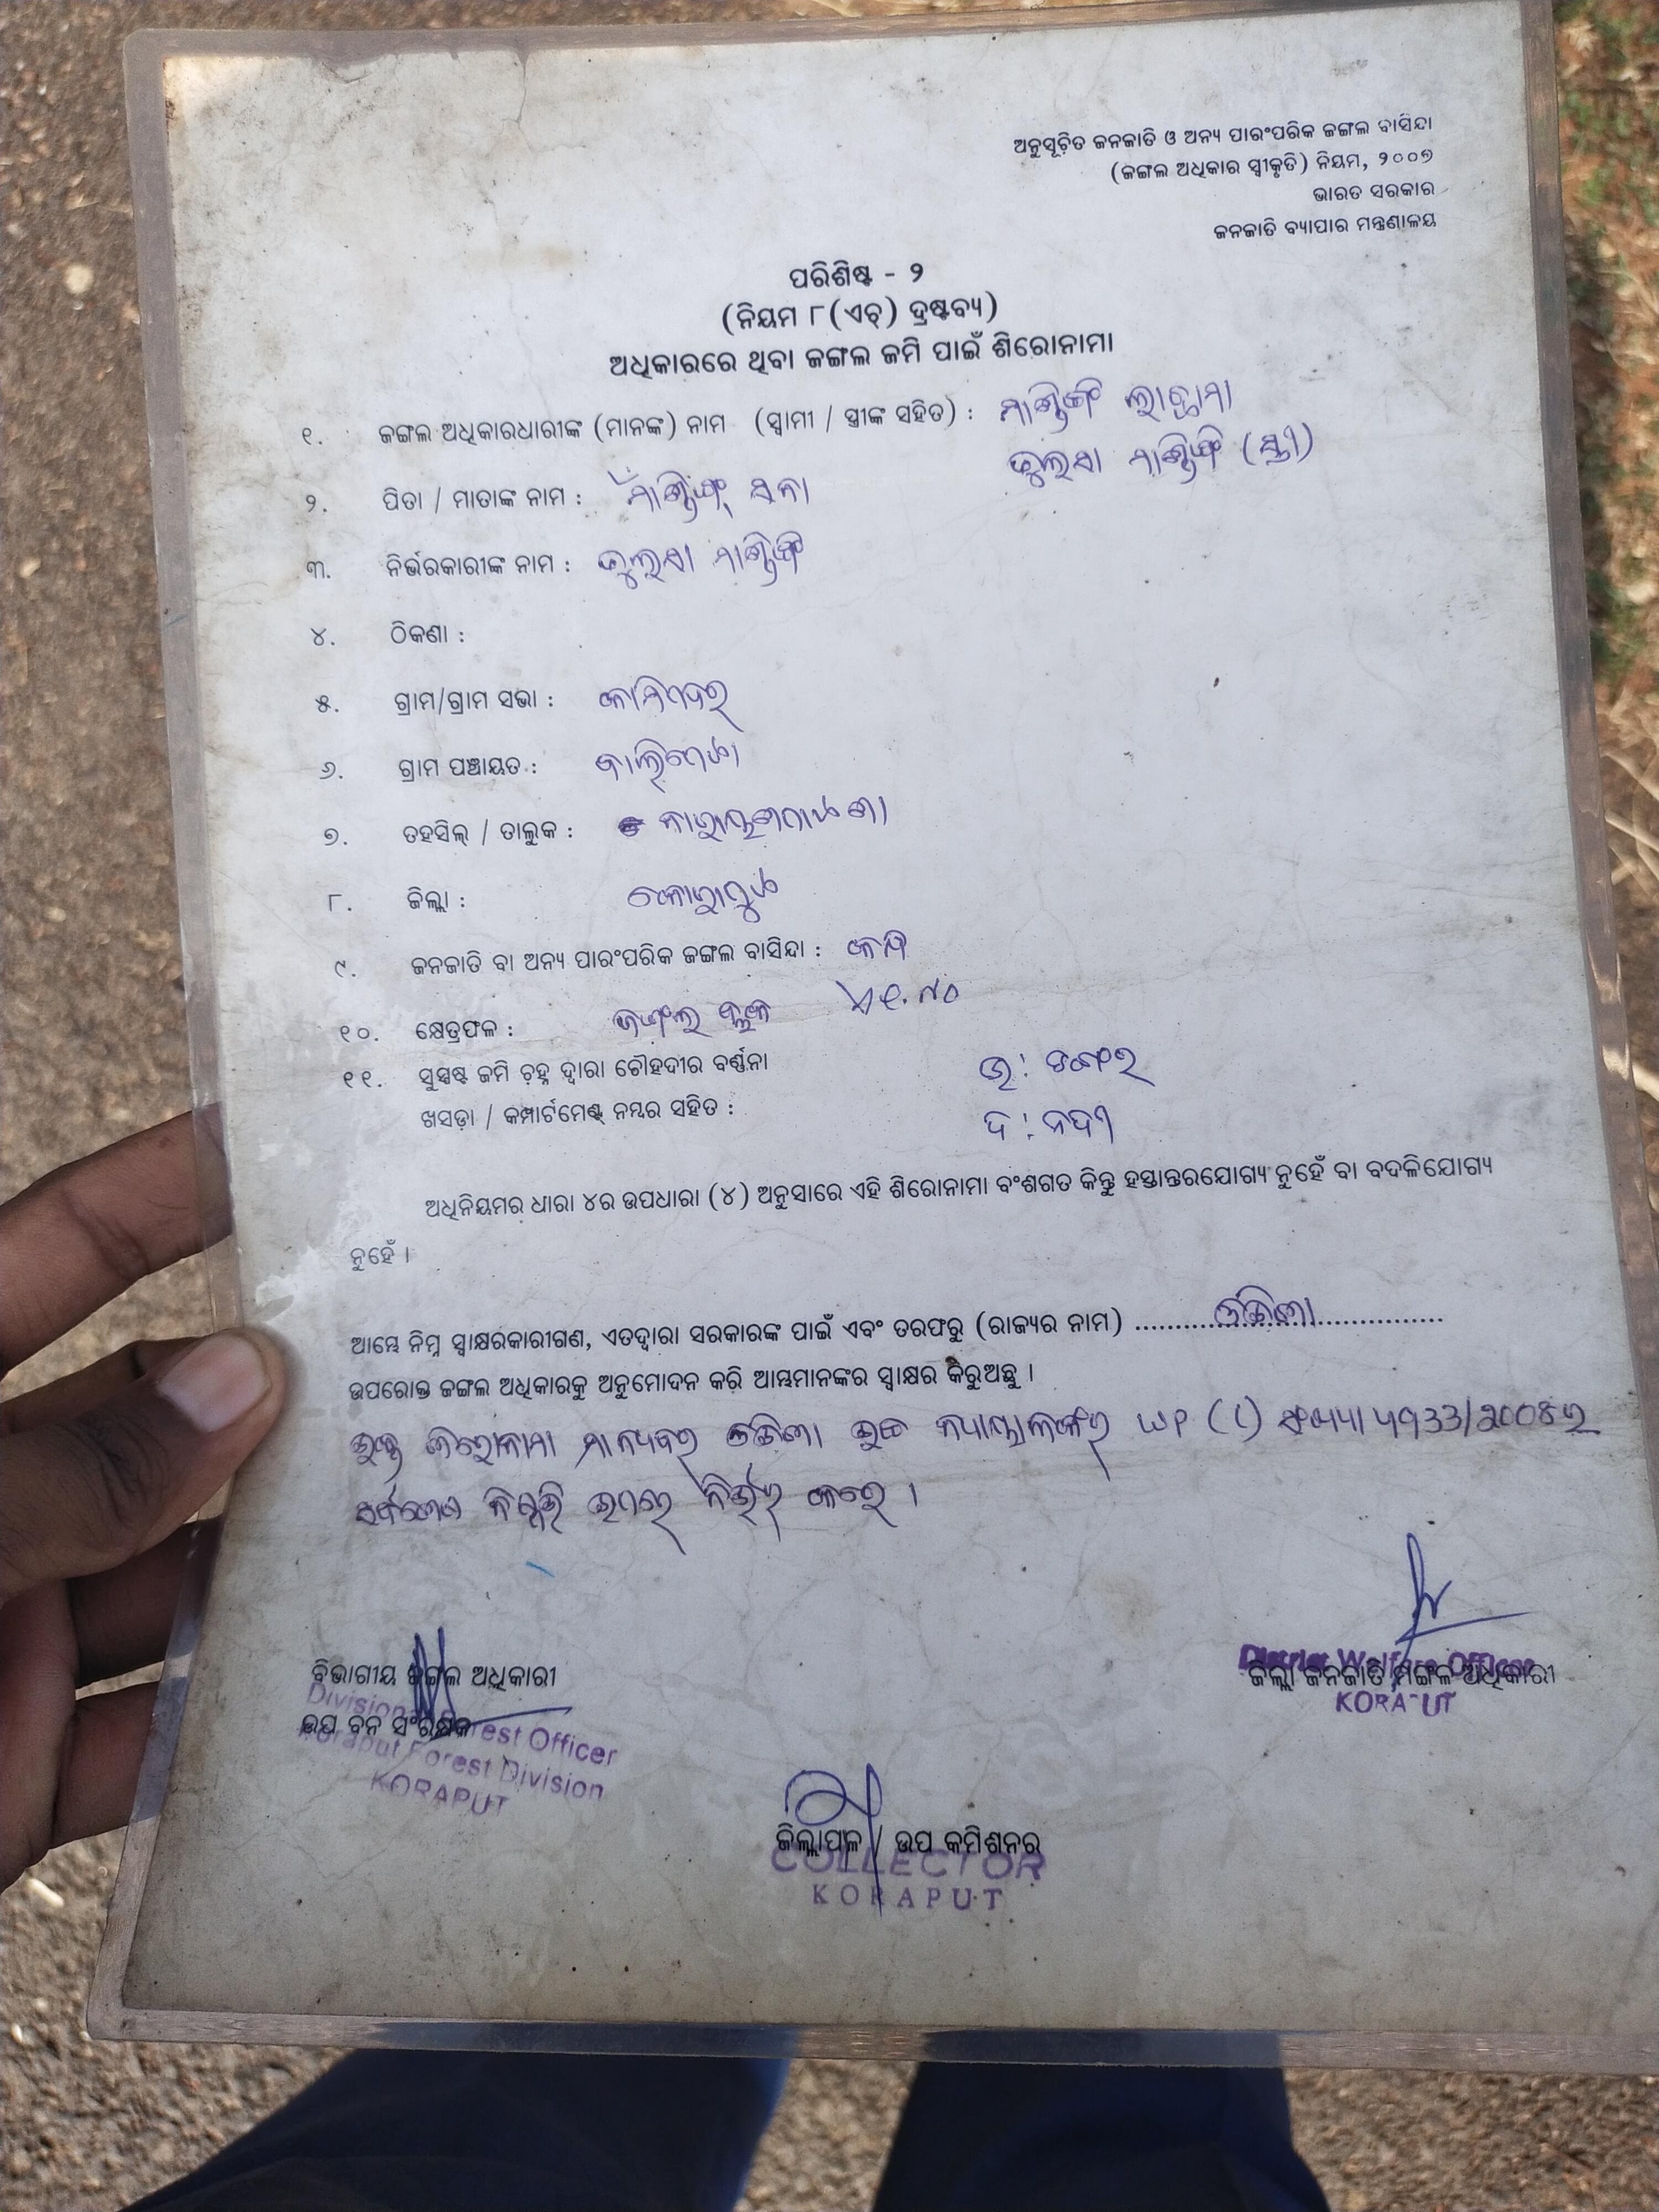 ଅନୁସୂଚିତ ଜନଜାତି ଓ ଅନ୍ୟ ପାରଂପରିକ ଜଙ୍ଗଲ ବାସିନ୍ଦା
(ଜଙ୍ଗଲ ଅଧିକାର ସ୍ଵୀକୃତି) ନିୟମ, ୨୦୦୭
ଭାରତ ସରକାର
ଜନଜାତି ବ୍ୟାପାର ମନ୍ତ୍ରଣାଳୟ
ପରିଶିଷ୍ଟ - ୨
(ନିୟମ ୮(ଏଚ୍) ଦ୍ରଷ୍ଟବ୍ୟ)
ଅଧିକାରରେ ଥିବା ଜଙ୍ଗଲ ଜମି ପାଇଁ ଶିରୋନାମା
୧. ଜଙ୍ଗଲ ଅଧିକାରଧାରୀଙ୍କ (ମାନଙ୍କ) ନାମ (ସ୍ଵାମୀ / ସ୍ତ୍ରୀଙ୍କ ସହିତ) :
(ସ୍ତ୍ରୀ)
୨. ପିତା / ମାତାଙ୍କ ନାମ :
୩. ନିର୍ଭରକାରୀଙ୍କ ନାମ :
୪. ଠିକଣା :
୫. ଗ୍ରାମ/ଗ୍ରାମ ସଭା :
୬. ଗ୍ରାମ ପଞ୍ଚାୟତ :
୭. ତହସିଲ୍ / ତାଲୁକ : ନାରାୟଣପାଟଣା
୮. ଜିଲ୍ଲା : କୋରାପୁଟ
୯. ଜନଜାତି ବା ଅନ୍ୟ ପାରଂପରିକ ଜଙ୍ଗଲ ବାସିନ୍ଦା :
୧୦. କ୍ଷେତ୍ରଫଳ : ଜଙ୍ଗଲ ବ୍ଲକ
୧୧. ସୁସ୍ପଷ୍ଟ ଜମି ଚିହ୍ନ ଦ୍ଵାରା ଚୌହଦୀର ବର୍ଣ୍ଣନା ଉ: ଡଙ୍ଗର
ଖସଡ଼ା / କମ୍ପାର୍ଟମେଣ୍ଟ୍ ନମ୍ବର ସହିତ : ଦ: ନଦୀ
ଅଧିନିୟମର ଧାରା ୪ର ଉପଧାରା (୪) ଅନୁସାରେ ଏହି ଶିରୋନାମା ବଂଶଗତ କିନ୍ତୁ ହସ୍ତାନ୍ତରଯୋଗ୍ୟ ନୁହେଁ ବା ବଦଳିଯୋଗ୍ୟ
ନୁହେଁ ।
ଆମ୍ଭେ ନିମ୍ନ ସ୍ଵାକ୍ଷରକାରୀଗଣ, ଏତଦ୍ଵାରା ସରକାରଙ୍କ ପାଇଁ ଏବଂ ତରଫରୁ (ରାଜ୍ୟର ନାମ) ........ଓଡ଼ିଶା........
ଉପରୋକ୍ତ ଜଙ୍ଗଲ ଅଧିକାରକୁ ଅନୁମୋଦନ କରି ଆମ୍ଭମାନଙ୍କର ସ୍ଵାକ୍ଷର କିରୁଅଛୁ ।
ଉକ୍ତ ଶିରୋନାମା ମାନ୍ୟବର ଓଡ଼ିଶା ଉଚ୍ଚ ନ୍ୟାୟାଳୟଙ୍କର WP (C) ସଂଖ୍ୟା ୪933/2008ର
ସର୍ବଶେଷ ନିଷ୍ପତ୍ତି ଉପରେ ନିର୍ଭର କରେ ।
ବିଭାଗୀୟ ଜଙ୍ଗଲ ଅଧିକାରୀ
ଉପ ବନ ସଂରକ୍ଷକ
Divisional Forest Officer
Koraput Forest Division
KORAPUT
District Welfare Officer
ଜିଲ୍ଲା ଜନଜାତି ମଙ୍ଗଳ ଅଧିକାରୀ
KORAPUT
ଜିଲ୍ଲାପାଳ / ଉପ କମିଶନର
COLLECTOR
KORAPUT